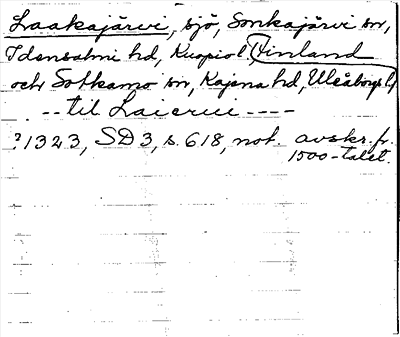 Laakajärvi, sjö, Sonkajärvi sn,
Idensalmi hd, Kuopio l. (Finland
och Sotkamo sn, Kajana hd, Uleåborgs l.)
-- til Laierwi ----
?1323, SD 3, s. 618, not. avskr. fr.
1500-talet.